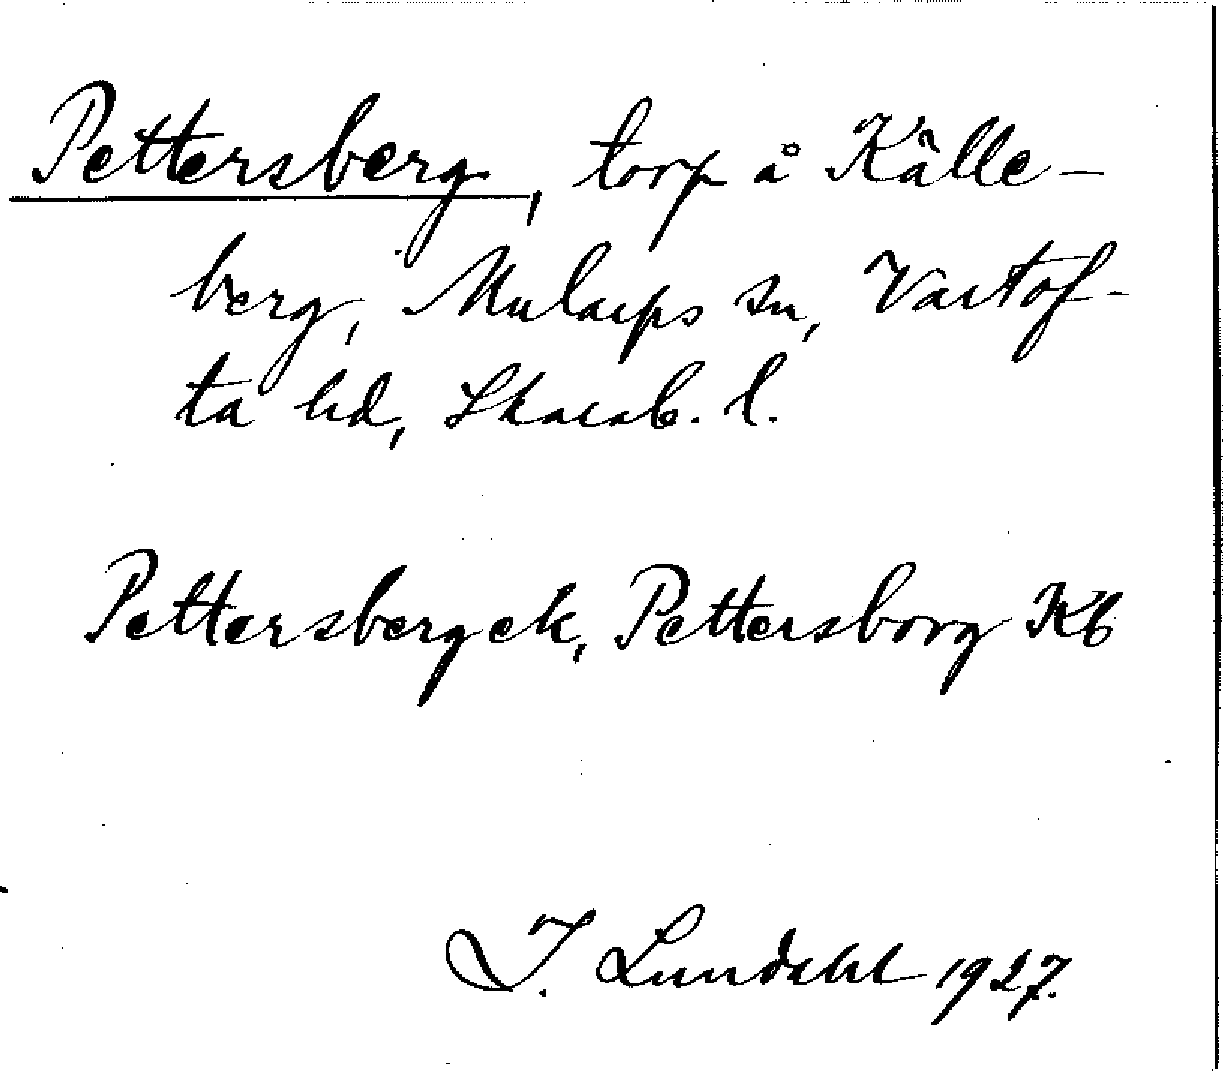 Pettersberg, torp å Källe-
berg, Mularps sn, Vartof-
ta hd, Skarab. l.
Pettersberg ek, Pettersborg Kb
I. Lundahl 1927.